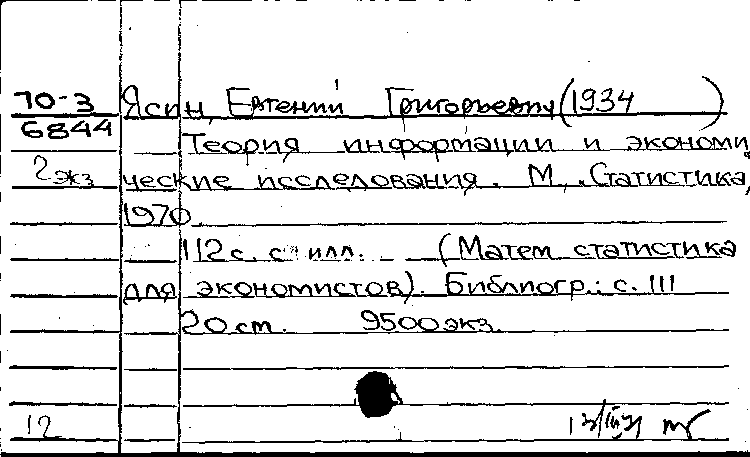 70-3 Ясин, Евгений Григорьевич (1934 )
6844
Теория информации и экономи
2 экз ческие исследования. М., "Статистика",
1970.
112 с. с илл. (Матем. статистика
для экономистов). Библиогр.: с. 111
20 см. 9500 экз.
12